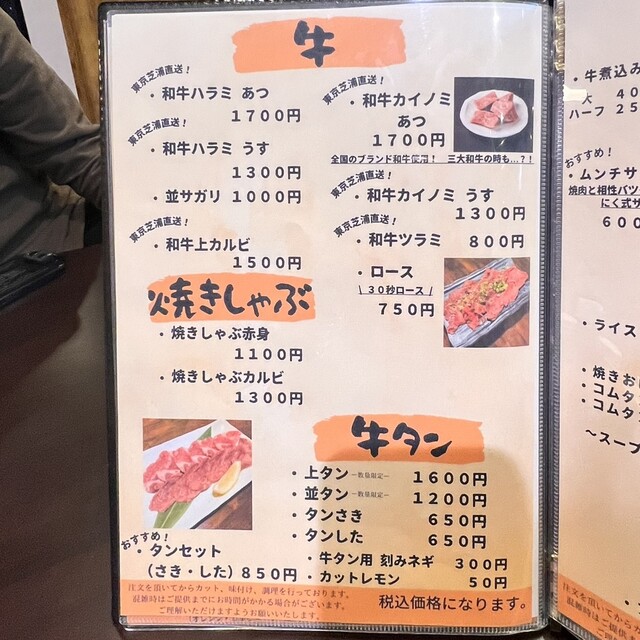 牛
東京芝浦直送！
・和牛ハラミ あつ
１７００円
東京芝浦直送！
・和牛ハラミ うす
１３００円
・並サガリ １０００円
東京芝浦直送！
・和牛上カルビ
１５００円
東京芝浦直送！
・和牛カイノミ
あつ
１７００円
全国のブランド和牛使用！ 三大和牛の時も…？！
東京芝浦直送！
・和牛カイノミ うす
１３００円
東京芝浦直送！
・和牛ツラミ ８００円
・ロース
\ ３０秒ロース /
７５０円
焼きしゃぶ
・焼きしゃぶ赤身
１１００円
・焼きしゃぶカルビ
１３００円
牛タン
・上タン －数量限定－ １６００円
・並タン －数量限定－ １２００円
・タンさき ６５０円
・タンした ６５０円
・牛タン用 刻みネギ ３００円
・カットレモン ５０円
おすすめ！
・タンセット
（さき・した）８５０円
注文を頂いてからカット、味付け、調理を行っております。
混雑時はご提供までにお時間がかかる場合がございます。
ご理解いただけますようお願いします。
税込価格になります。
・牛煮込み
大 ４０
ハーフ ２５
おすすめ！
・ムンチサ
焼肉と相性バツ
にく式サ
６００
・ライス
・焼きお
・コムタ
・コムタ
～スープ
注文を頂いてからカ
混雑時はご提供
ご理解